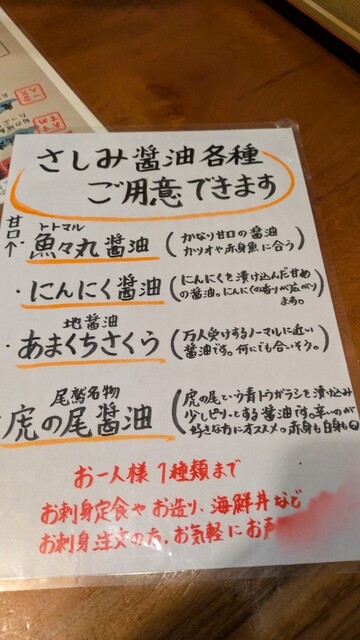 さしみ醤油各種
ご用意できます
甘口
↑
トトマル
・魚々丸醤油
(かなり甘口の醤油
カツオや赤身魚に合う)
・にんにく醤油
(にんにくを漬け込んだ甘め
の醤油。にんにくの香りが広がり
ます。)
地醤油
・あまくちさくら
(万人受けするノーマルに近い
醤油です。何にでも合いそう。)
尾鷲名物
虎の尾醤油
(虎の尾という青トウガラシを漬け込み
少しピリッとする醤油です。辛いのが
好きな方にオススメ。赤身も白身も
お一人様1種類まで
お刺身定食やお造り、海鮮丼など
お刺身注文の方、お気軽にお声